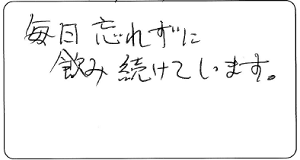 毎日忘れずに
飲み続けています。